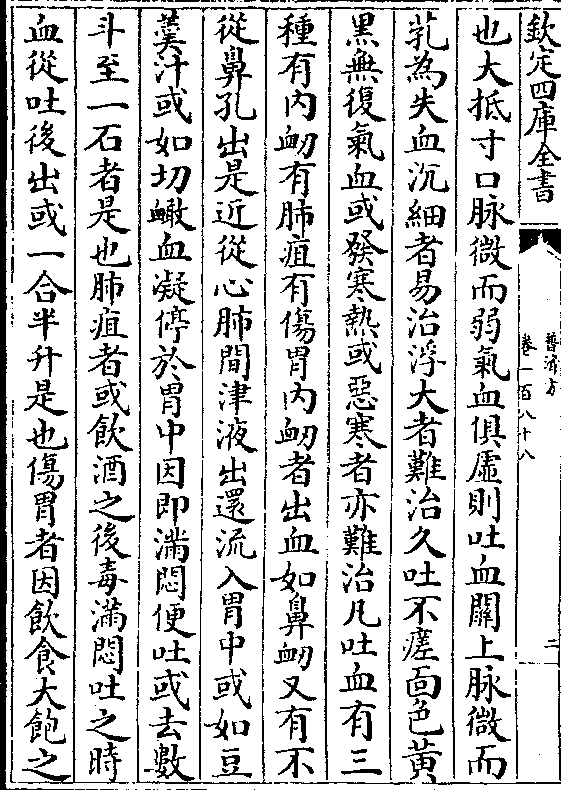 欽定四庫全書
普濟方
卷一百八十八
二
也大抵寸口脉微而弱氣血俱虛則吐血關上脉微而
芤為失血沉細者易治浮大者難治久吐不瘥面色黄
黒無復氣血或發寒熱或惡寒者亦難治凡吐血有三
種有内衂有肺疽有傷胃内衂者出血如鼻衂又有不
從鼻孔出是近從心肺間津液出還流入胃中或如豆
羮汁或如切𧖻血凝停於胃中因即滿悶便吐或去數
斗至一石者是也肺疽者或飲酒之後毒滿悶吐之時
血從吐後出或一合半升是也傷胃者因飲食大飽之